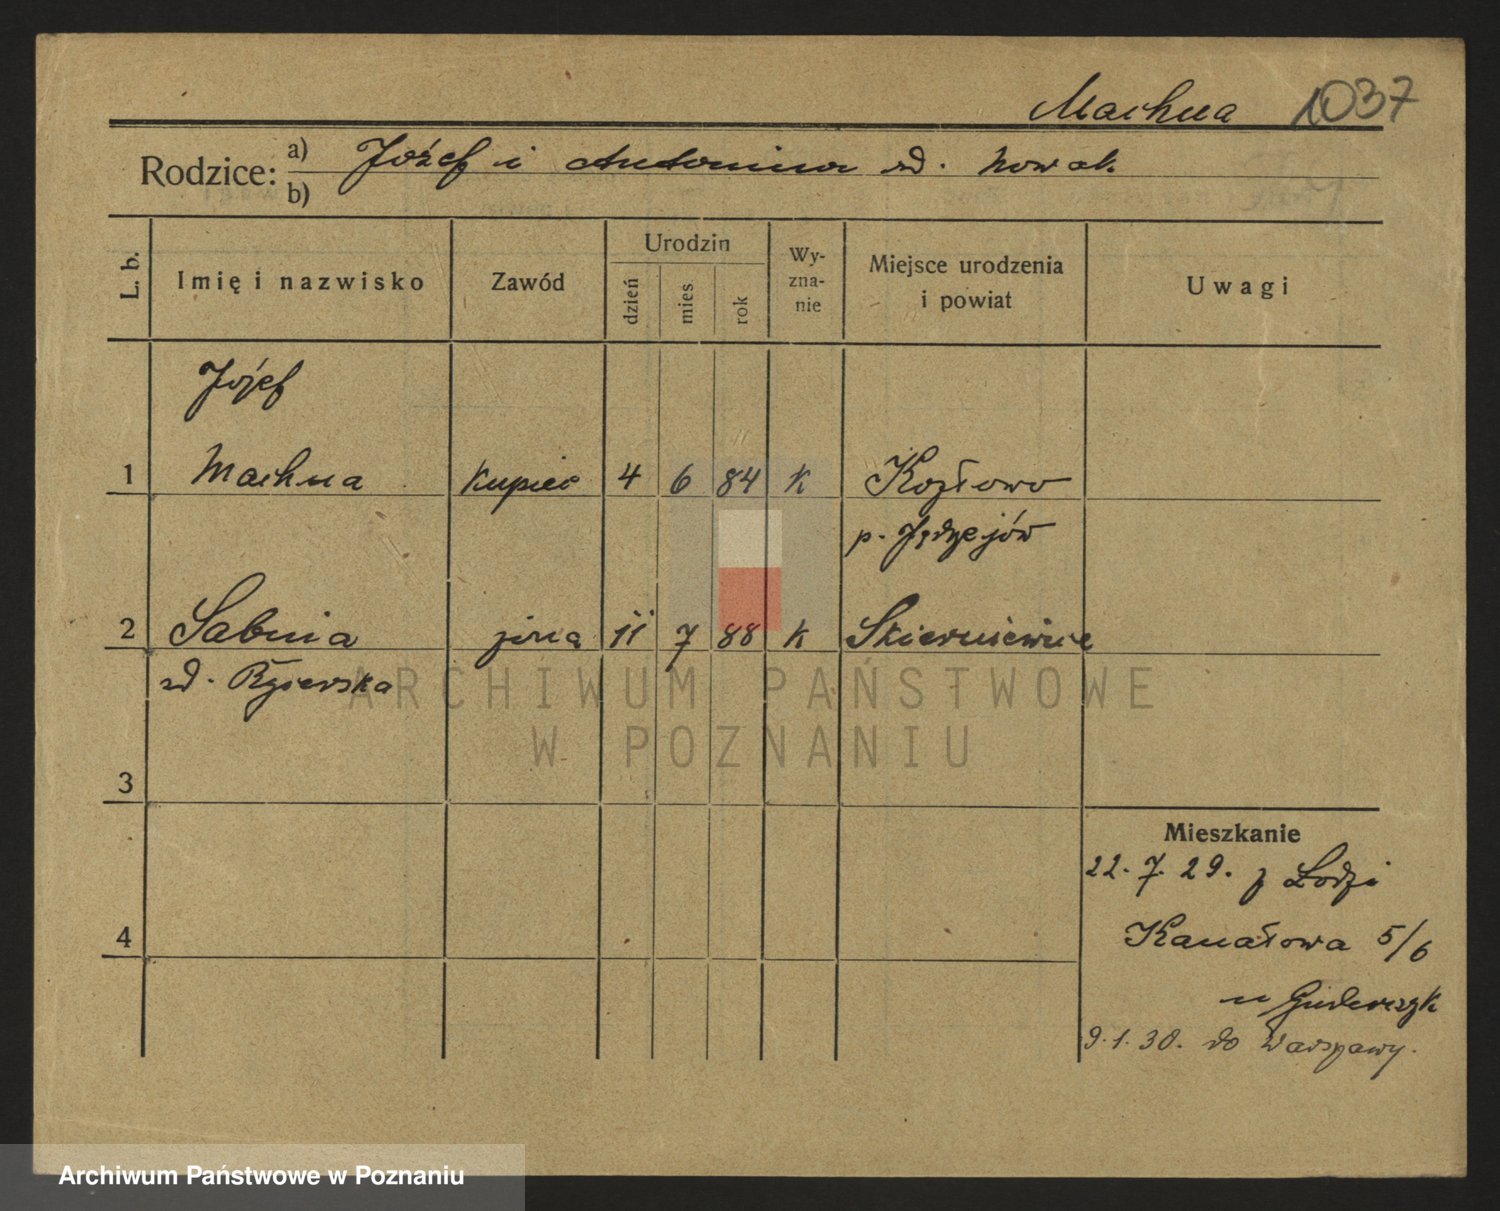 Machna 1037
Rodzice: a) Józef i Antonina zd. Nowak
b)
L. b. Imię i nazwisko Zawód Urodzin dzień mies rok Wy-zna-nie Miejsce urodzenia i powiat Uwagi
Józef
1 Machna kupiec 4 6 84 k Kozłowo
p. Jędzejów
2 Sabina żona 11 7 88 k Skierniewice
zd.
ARCHIWUM PAŃSTWOWE
W POZNANIU
3
Mieszkanie
22.7.29. z Łodzi
4
Kanałowa 5/6
u
9.1.30. do Warszawy.
Archiwum Państwowe w Poznaniu